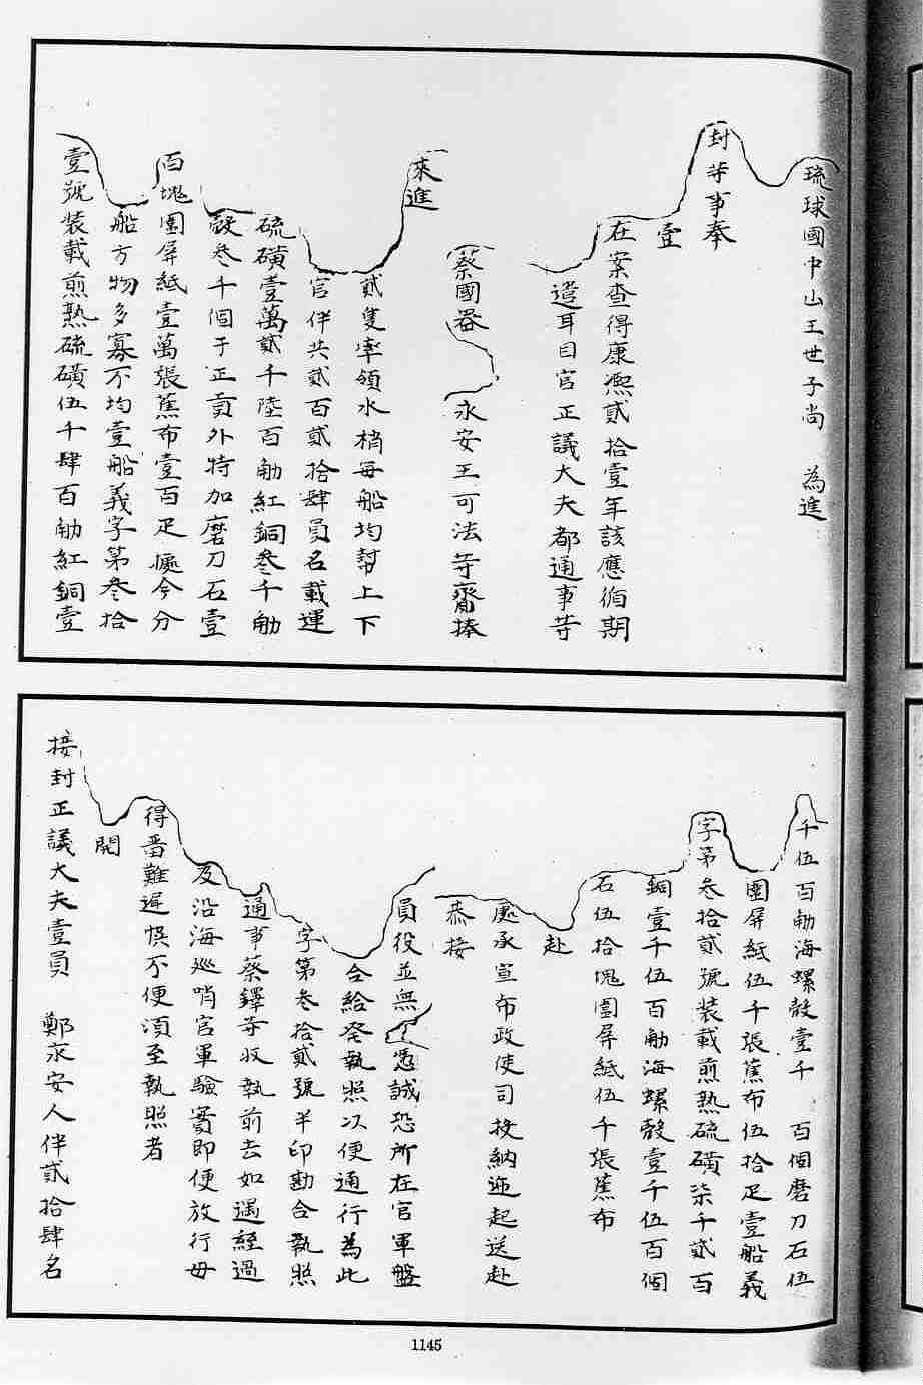 琉球國中山王世子尚 為進
封等事奉
壹
在案查得康熙貳拾壹年該應循期
遣耳目官正議大夫都通事等
蔡國器 永安王可法等齎捧
來進
貳隻率領水梢每船均幫上下
官伴共貳百貳拾肆員名載運
硫磺壹萬貳千陸百觔紅銅叁千觔
殼叁千個于正貢外特加磨刀石壹
百塊圍屏紙壹萬張蕉布壹百疋處今分
船方物多寡不均壹船義字第叁拾
壹號裝載煎熟硫磺伍千肆百觔紅銅壹
千伍百觔海螺殼壹千 百個磨刀石伍
圍屏紙伍千張蕉布伍拾疋壹船義
字第叁拾貳號裝載煎熟硫磺柒千貳百
銅壹千伍百觔海螺殼壹千伍百個
石伍拾塊圍屏紙伍千張蕉布
赴
處承宣布政使司投納迎起送赴
恭接
員役並無 憑誠恐所在官軍盤
合給發執照以便通行為此
字第叁拾貳號半印勘合執照
通事蔡鐸等收執前去如遇經過
及沿海巡哨官軍驗實即便放行毋
得畱難遲悞不便須至執照者
開
接封正議大夫壹員 鄭永安人伴貳拾肆名
1145